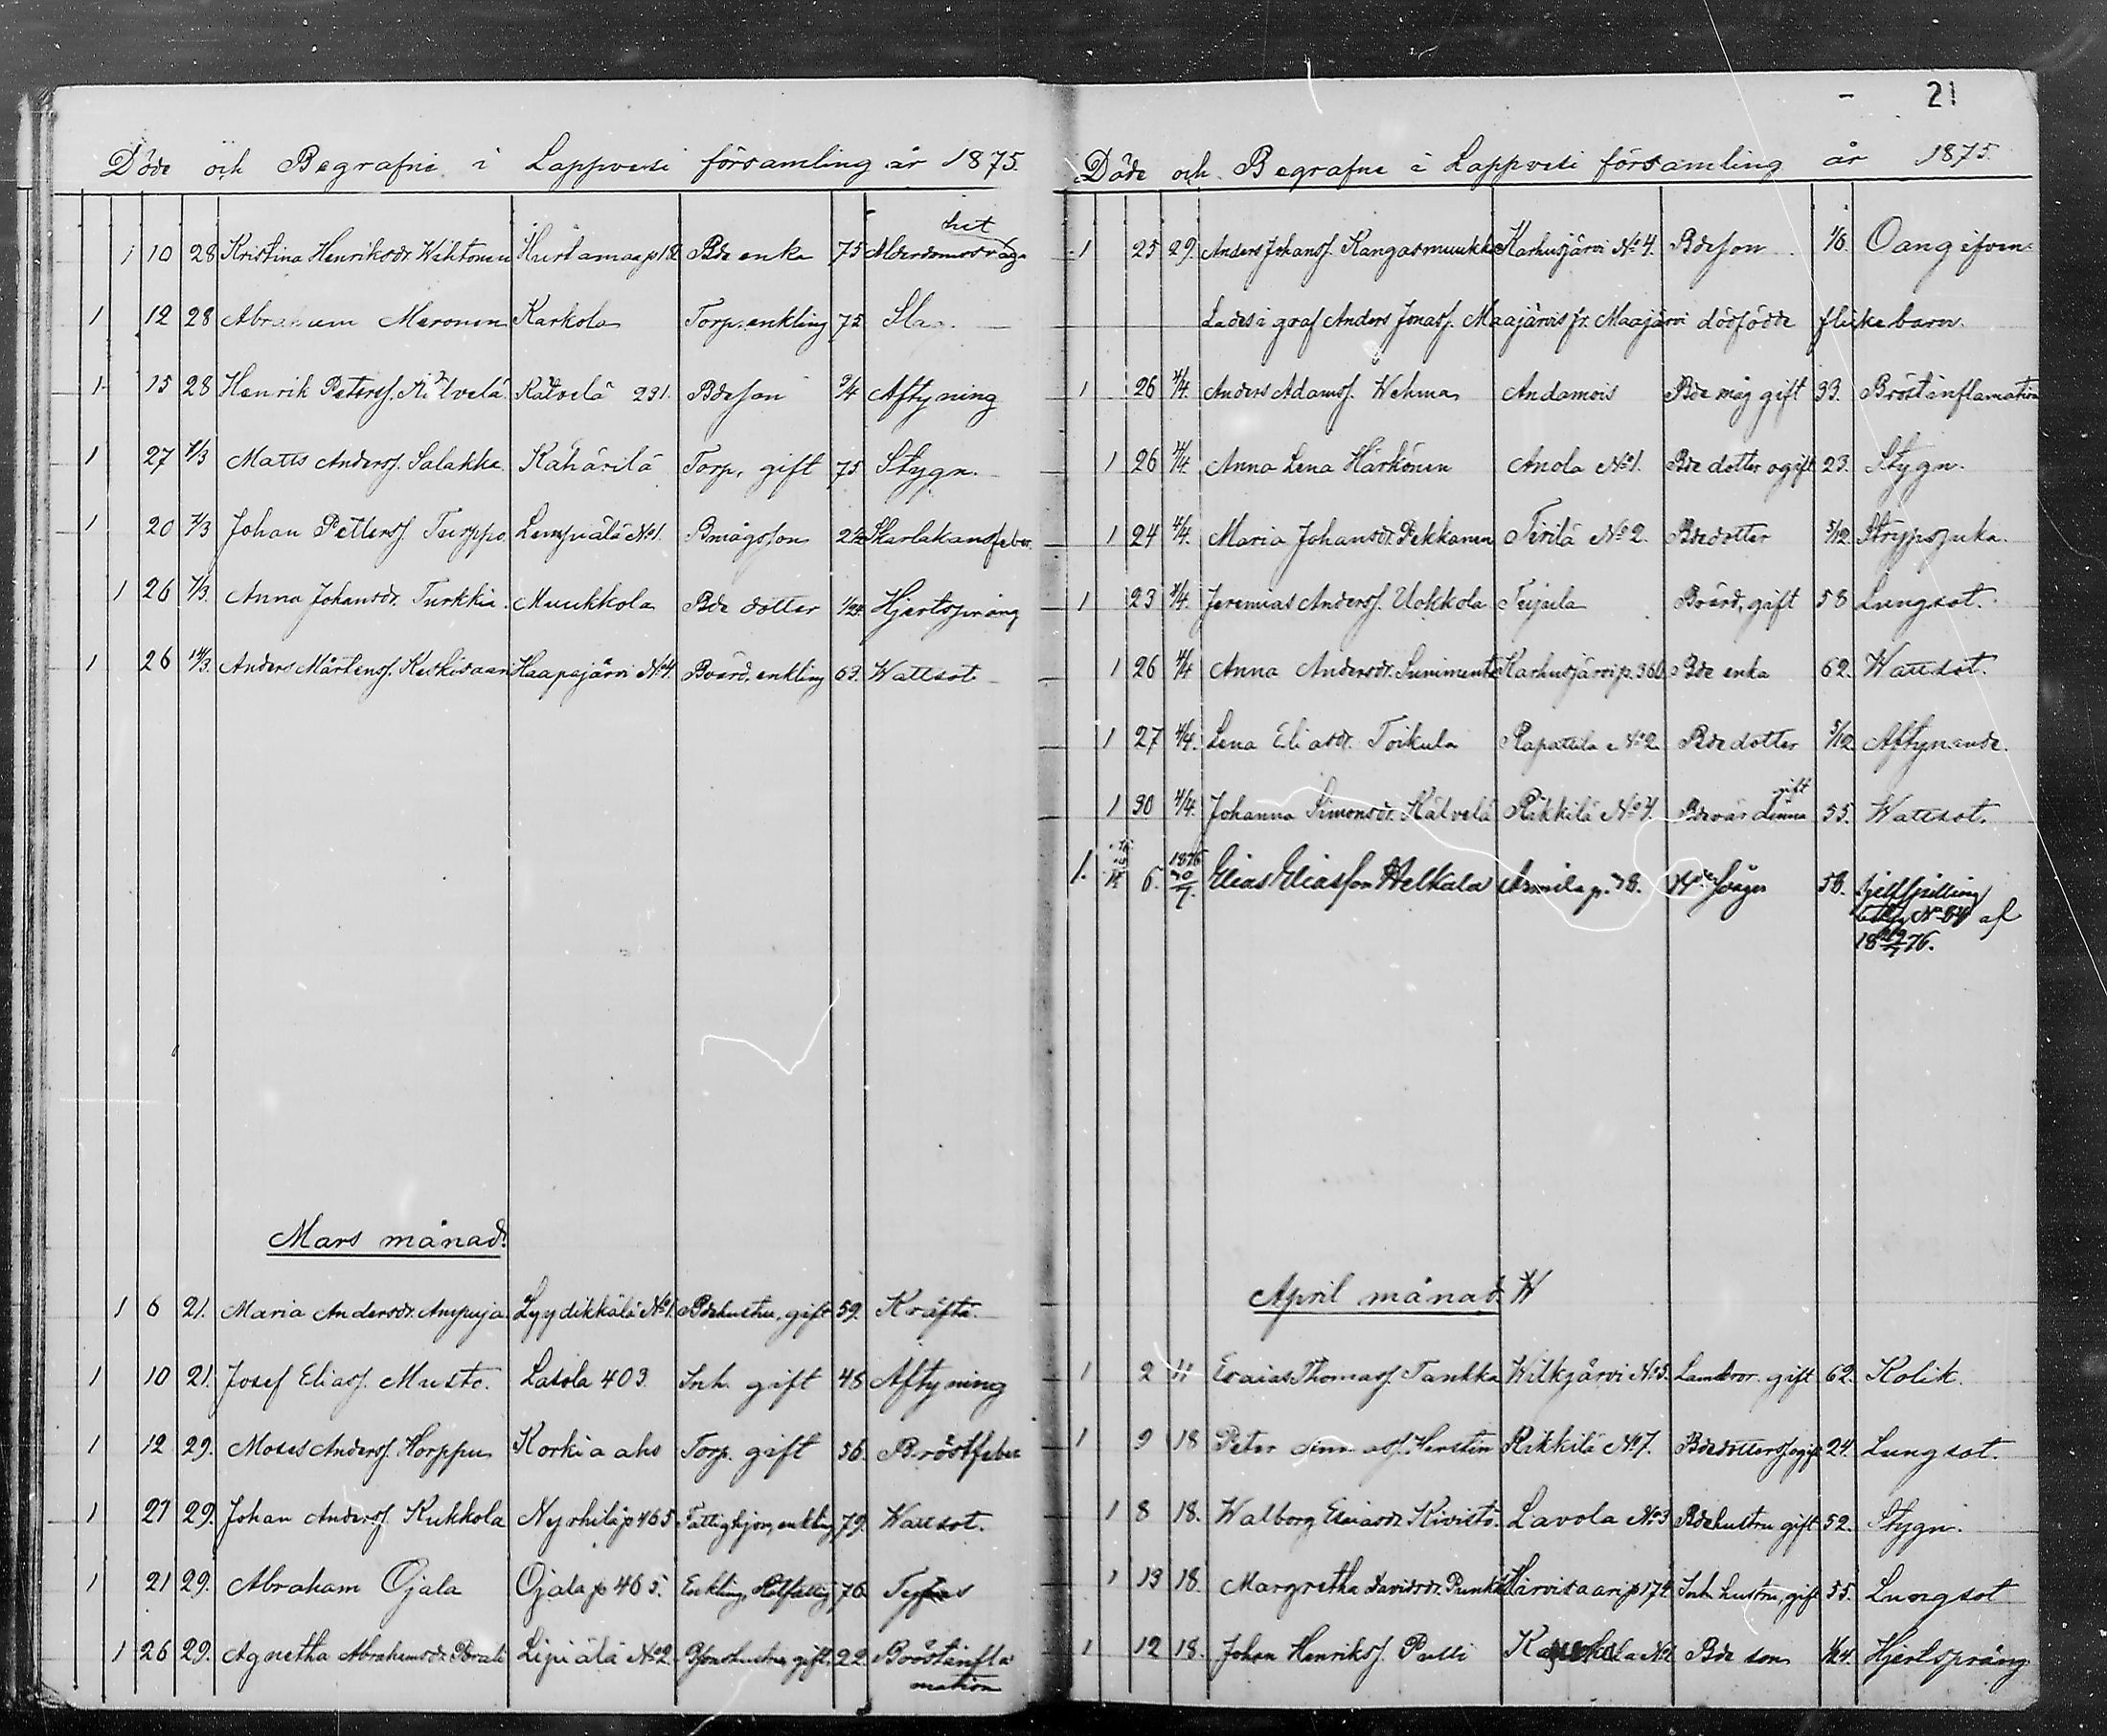 21
Döde och Begrafne i Lappvesi församling år 1875.
het
1 10 28 Kristina Henriksdr. Wihtonen Hurtamaa p 18 Bde enka 75 Ålderdomssvag
1 12 28 Abraham Meronen Karkola Torp. enkling 75 Slag.
1 15 28 Henrik Peterss. Rätvelä Rätvelä 231. Bdeson 3/4 Aftyning
1 27 7/3 Matts Anderss. Salakka Kähärilä Torp, gift 75 Stygn.
1 20 7/3 Johan Petterss. Turppo Lempiälä No 1. Bmågsson 2 1/2 Skarlakansfeber.
1 26 7/3. Anna Johansdr. Turkkia Muukkola Bde dotter 1/24 Hjertsprång
1 26 14/3. Anders Mårtenss. Keskisaari Haapajärvi No 4. Bvärd. enkling 63. Wattsot
Mars månad.
1 6 21. Maria Andersdr. Ampuja Lyydikkälä No 1. Bdehustru, gift 59. Kräfta.
1 10 21. Josef Eliass. Musto. Lasola 403. Inh. gift 48 Aftyning
1 12 29. Moses Anderss. Horppu Korkia aho Torp. gift 56. Bröstfeber
1 21 29. Johan Anderss. Kukkola Nyrhilä p 465 Fattighjon, enkling 79. Wattsot.
1 21 29. Abraham Ojala Ojala p 465. Enkling, 76
1 26 29. Agnetha Abrahamsdr. Lipiälä No 2. gift. 22. Bröstinfla
mation
Döde och Begrafne i Lappvesi församling år 1875.
1 25 29. Anders Johanss. Kangasmuukko Karhusjärvi No 4. Bdeson 1/6. Oangifven
Lades i graf Anders Jonass. Maajärvis fr. Maajärvi dödfödde flickebarn.
1 26 4/4. Anders Adamss. Wehma Bde måg gift 33. Bröstinflamation
1 26 4/4. Anna Lena Härkönen Anola No 1. Bde dotter ogift 23. Stygn.
1 24 4/4. Maria Johansdr. Pekkanen Tirilä No 2. Bdedotter 5/12. Strypsjuka.
1 23 4/4. Jeremias Anderss. Uokkola Bvärd, gift 58 Lungsot.
1 26 4/4 Anna Andersdr. Karhusjärvi p. 366 Bde enka 62. Wattsot.
1 27 4/4. Lena Eliasdr. Toikula Rapattila No 2 Bdedotter 5/12 Aftynande.
gift
1 30 4/4. Johanna Simonsdr. Kätvelä Rikkilä No 7. Bdevärdinna 55. Wattsot.
1. 6. 1876 30/7. Elias Eliasson Helkala Armila p. 78. Måg 58. Sjelfspilling
No 54 af
18 76.
April månad.
1 2 11 Esaias Thomass. Tankka Wilkjärvi No 5. gift 62. Kolik.
1 9 18 Peter Rikkilä No 7. Bdedotters. ogift 24. Lungsot.
1 8 18. Walborg Esaiasdr. Kivistö. Lavola No 3 Bdehustru gift 52. Stygn.
1 13 18. Margretha Davidsdr. Punkka Järvisaari p 174 Inh. hustru, gift 55. Lungsot
1 12 18. Johan Henrikss. Pulli Bde son 1/24. Hjertsprång